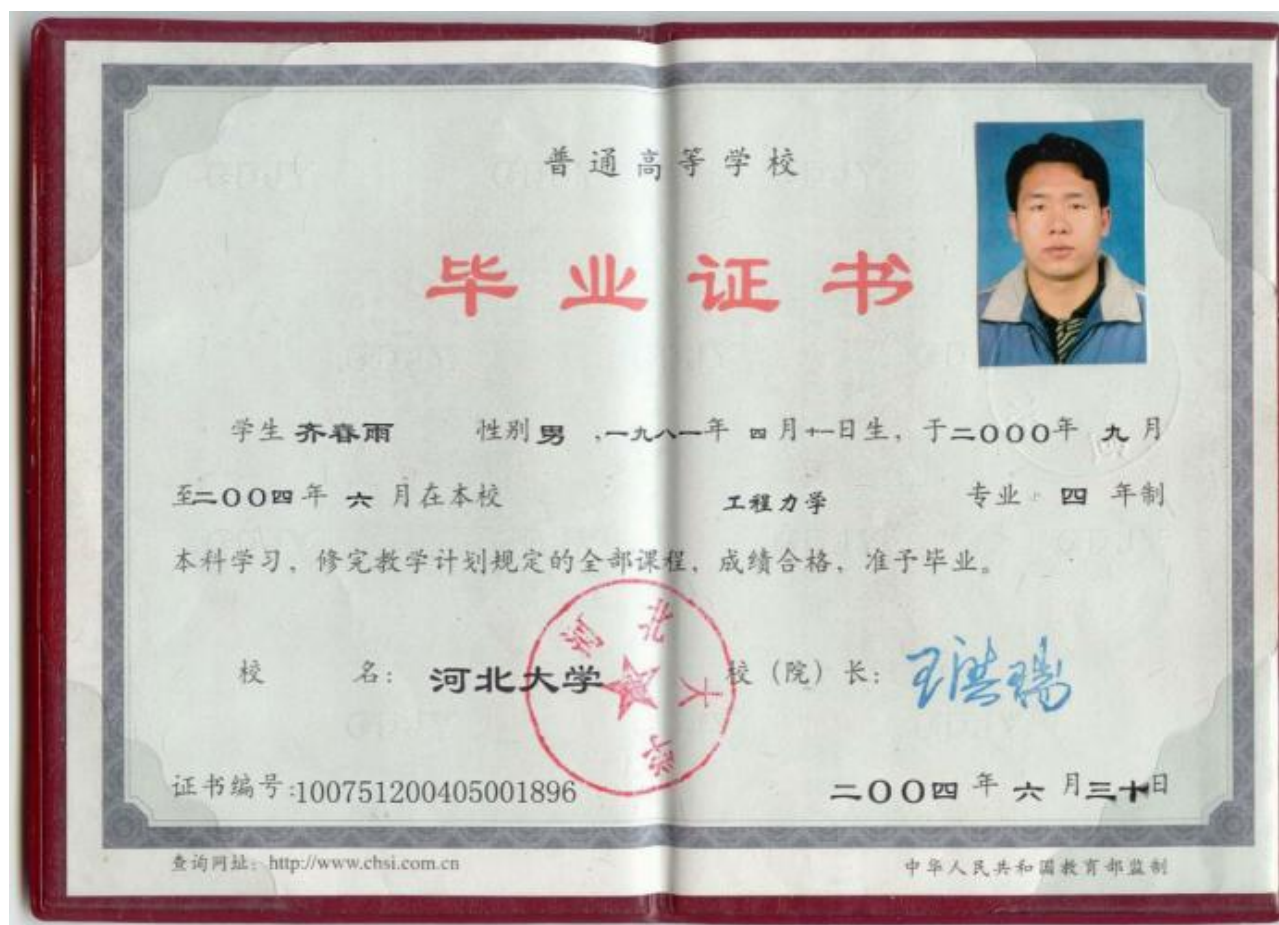 普通高等学校
毕业证书
学生 齐春雨 性别 男 ,一九八一年 四 月十一日生, 于二000年 九 月
至二00四年 六 月在本校 工程力学 专业 四 年制
本科学习, 修完教学计划规定的全部课程, 成绩合格, 准予毕业。
校 名: 河北大学 校(院)长: 王洪瑞
河北大学
证书编号:100751200405001896 二00四 年 六 月三十日
查询网址: http://www.chsi.com.cn 中华人民共和国教育部监制